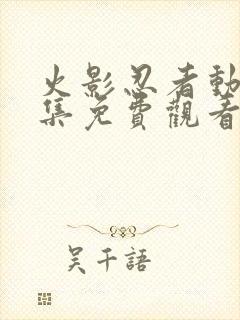 火影忍者動
集免費觀看
吴千語